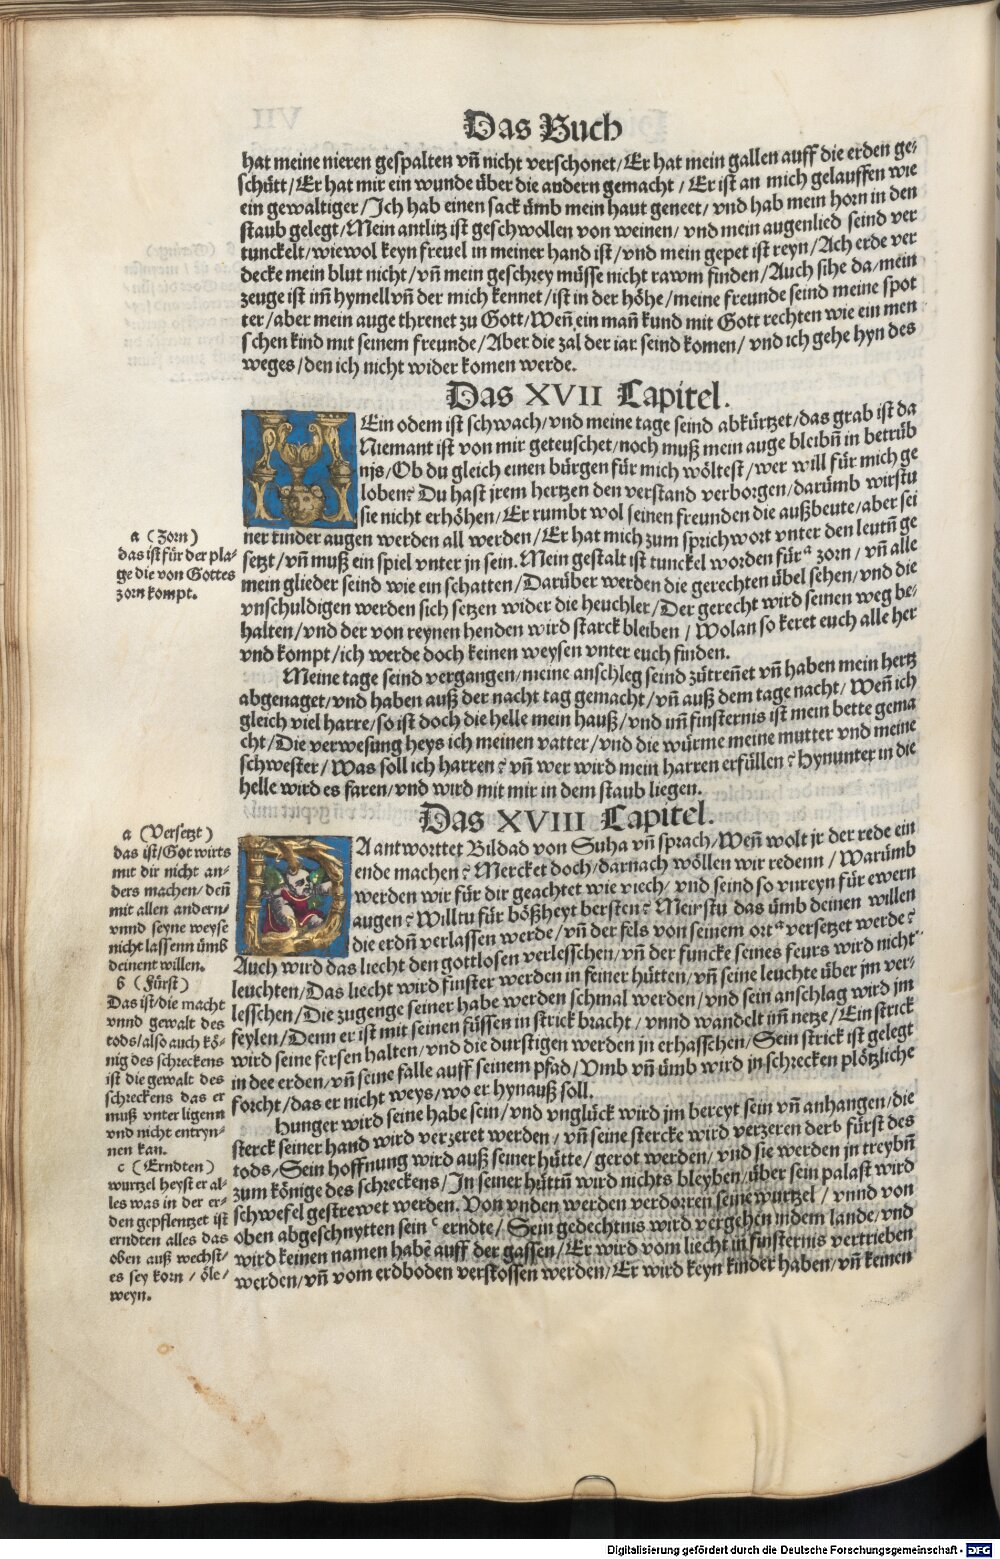 Das Buch
hat meine nieren gespalten vñ nicht verschonet/Er hat mein gallen auff die erden ge-
schütt/Er hat mir ein wunde über die andern gemacht/Er ist an mich gelauffen wie
ein gewaltiger/Ich hab einen sack ümb mein haut geneet/vnd hab mein horn in den
staub gelegt/Mein antlitz ist geschwollen von weinen/vnd mein augenlied seind ver
tunckelt/wiewol keyn freuel in meiner hand ist/vnd mein gepet ist reyn/Ach erde ver
decke mein blut nicht/vñ mein geschrey müsse nicht rawm finden/Auch sihe da/mein
zeuge ist im̃ hymell vñ der mich kennet/ist in der höhe/meine freunde seind meine spot
ter/aber mein auge threnet zu Gott/Weñ ein mañ kund mit Gott rechten wie ein men
schen kind mit seinem freunde/Aber die zal der iar seind komen/vnd ich gehe hyn des
weges/den ich nicht wider komen werde.
Das XVII Capitel.
MEin odem ist schwach/vnd meine tage seind abkürtzet/das grab ist da
Niemant ist von mir geteuschet/noch muß mein auge bleibñ in betrüb
nis/Ob du gleich einen bürgen für mich wöltest/wer will für mich ge
loben? Du hast jrem hertzen den verstand verborgen/darümb wirstu
sie nicht erhöhen/Er rumbt wol seinen freunden die außbeute/aber sei
ner kinder augen werden all werden/Er hat mich zum sprichwort vnter den leutñ ge
setzt/vñ muß ein spiel vnter jn sein. Mein gestalt ist tunckel worden für ᵃ zorn/vñ alle
mein glieder seind wie ein schatten/Darüber werden die gerechten übel sehen/vnd die
vnschuldigen werden sich setzen wider die heuchler/Der gerecht wird seinen weg be-
halten/vnd der von reynen henden wird starck bleiben/Wolan so keret euch alle her
vnd kompt/ich werde doch keinen weysen vnter euch finden.
Meine tage seind vergangen/meine anschleg seind zütreñet vñ haben mein hertz
abgenaget/vnd haben auß der nacht tag gemacht/vñ auß dem tage nacht/Weñ ich
gleich viel harre/so ist doch die helle mein hauß/vnd im̃ finsternis ist mein bette gema
cht/Die verwesung heys ich meinen vatter/vnd die würme meine mutter vnd meine
schwester/Was soll ich harren? vñ wer wird mein harren erfüllen? Hynunter in die
helle wird es faren/vnd wird mit mir in dem staub liegen.
a (Zorn)
das ist für der pla-
ge die von Gottes
zorn kompt.
Das XVIII Capitel.
DA antworttet Bildad von Suha vñ sprach/Weñ wolt jr der rede ein
ende machen? Mercket doch/darnach wöllen wir redenn/Warümb
werden wir für dir geachtet wie viech/vnd seind so vnreyn für ewern
augen? Willtu für bößheyt bersten? Meirstu das ümb deinen willen
die erdñ verlassen werde/vñ der fels von seinem ort ᵃ versetzet werde?
Auch wird das liecht den gottlosen verlesschen/vñ der funcke seines feurs wird nicht
leuchten/Das liecht wird finster werden in seiner hütten/vñ seine leuchte über jm ver-
lesschen/Die zugenge seiner habe werden schmal werden/vnd sein anschlag wird jm
feylen/Denn er ist mit seinen füssen in strick bracht/vnnd wandelt im̃ netze/Ein strick
wird seine fersen halten/vnd die durstigen werden jn erhasschen/Sein strick ist gelegt
in dee erden/vñ seine falle auff seinem pfad/Vmb vñ ümb wird jn schrecken plötzliche
forcht/das er nicht weys/wo er hynauß soll.
Hunger wird seine habe sein/vnd vnglück wird jm bereyt sein vñ anhangen/die
sterck seiner hand wird verzeret werden/vñ seine stercke wird verzeren der ᵇ fürst des
tods/Sein hoffnung wird auß seiner hütte/gerot werden/vnd sie werden jn treybñ
zum könige des schreckens/In seiner hüttñ wird nichts bleyben/über sein palast wird
schwefel gestrewet werden. Von vnden werden verdorren seine wurtzel/vnnd von
oben abgeschnytten sein ᶜ erndte/Sein gedechtnis wird vergehen in dem lande/vnd
wird keinen namen habẽ auff der gassen/Er wird vom liecht in finsternis vertrieben
werden/vñ vom erdboden verstossen werden/Er wird keyn kinder haben/vñ keinen
a (Versetzt)
das ist/Got wirts
mit dir nicht an-
ders machen/deñ
mit allen andern/
vnnd seyne weyse
nicht lassenn ümb
deinent willen.
b (Fürst)
Das ist/die macht
vnnd gewalt des
tods/also auch kö-
nig des schreckens
ist die gewalt des
schreckens das er
muß vnter ligenn
vnd nicht entryn-
nen kan.
c (Erndten)
wurtzel heyst er al-
les was in der er-
den gepflentzet ist
erndten alles das
oben auß wechst-
es sey korn/öle/
weyn.
Digitalisierung gefördert durch die Deutsche Forschungsgemeinschaft - DFG